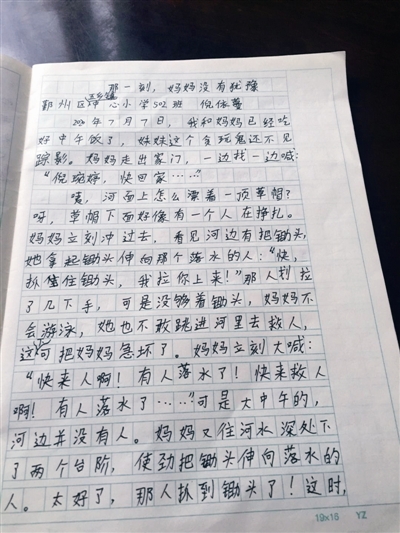 那一刻，妈妈没有犹豫
鄞州区五乡镇中心小学502班 倪依蔓
2020年7月7日，我和妈妈已经吃
好中午饭了，妹妹这个贪玩鬼还不见
踪影。妈妈走出家门，一边找一边喊：
“倪琬婷，快回家……”
咦，河面上怎么漂着一顶草帽？
呀，草帽下面好像有一个人在挣扎。
妈妈立刻冲过去，看见河边有把锄头，
她拿起锄头伸向那个落水的人：“快，
抓住住锄头，我拉你上来！”那人划拉
了几下手，可是没够着锄头，妈妈不
会游泳，她也不敢跳进河里去救人，
这可把妈妈急坏了。妈妈立刻大喊：
“快来人啊！有人落水了！快来救人
啊！有人落水了……”可是大中午的，
河边并没有人。妈妈又往河水深处下
了两个台阶，使劲把锄头伸向落水的
人。太好了，那人抓到锄头了！这时，
19×16 YZ